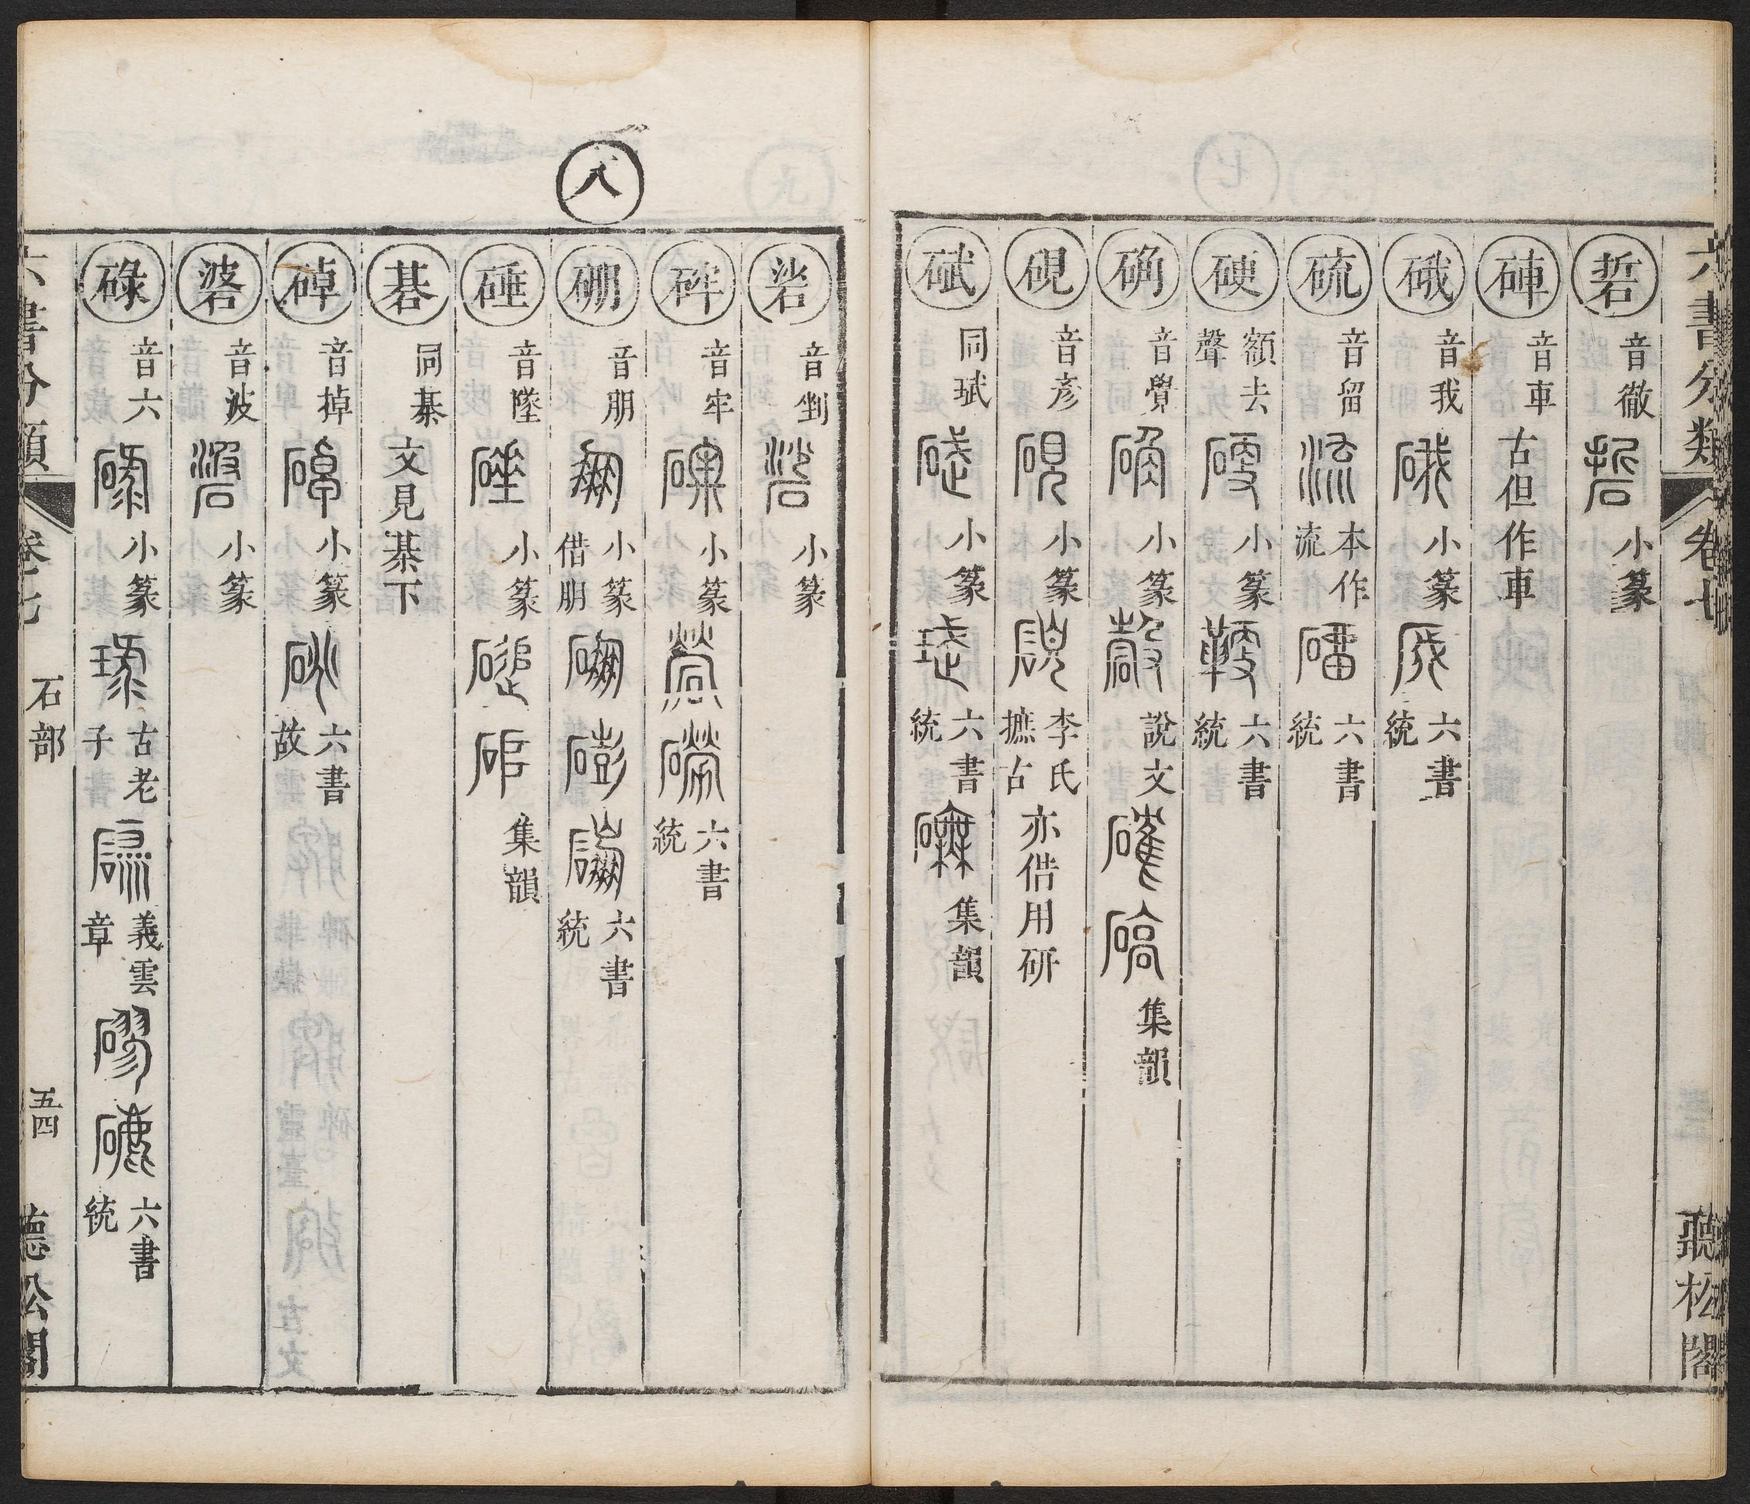 六書分類 卷七 聽松閣
硩 音徹 小篆
硨 音車 古但作車
硪 音我 小篆 六書統
硫 音留 本作流 六書統
硬 額去聲 小篆 六書統
确 音覺 小篆 說文 集韻
硯 音彥 小篆 李氏摭古 亦借用研
碔 同珷 小篆 六書統 集韻
音剉 小篆
音牢 小篆 六書統
八
硼 音朋 小篆借朋 六書統
硾 音墜 小篆 集韻
碁 同棊 文見棊下
音掉 小篆 六書故
碆 音波 小篆
碌 音六 小篆 古老子 義雲章 六書統
六書分類 卷七 石部 五四 聽松閣